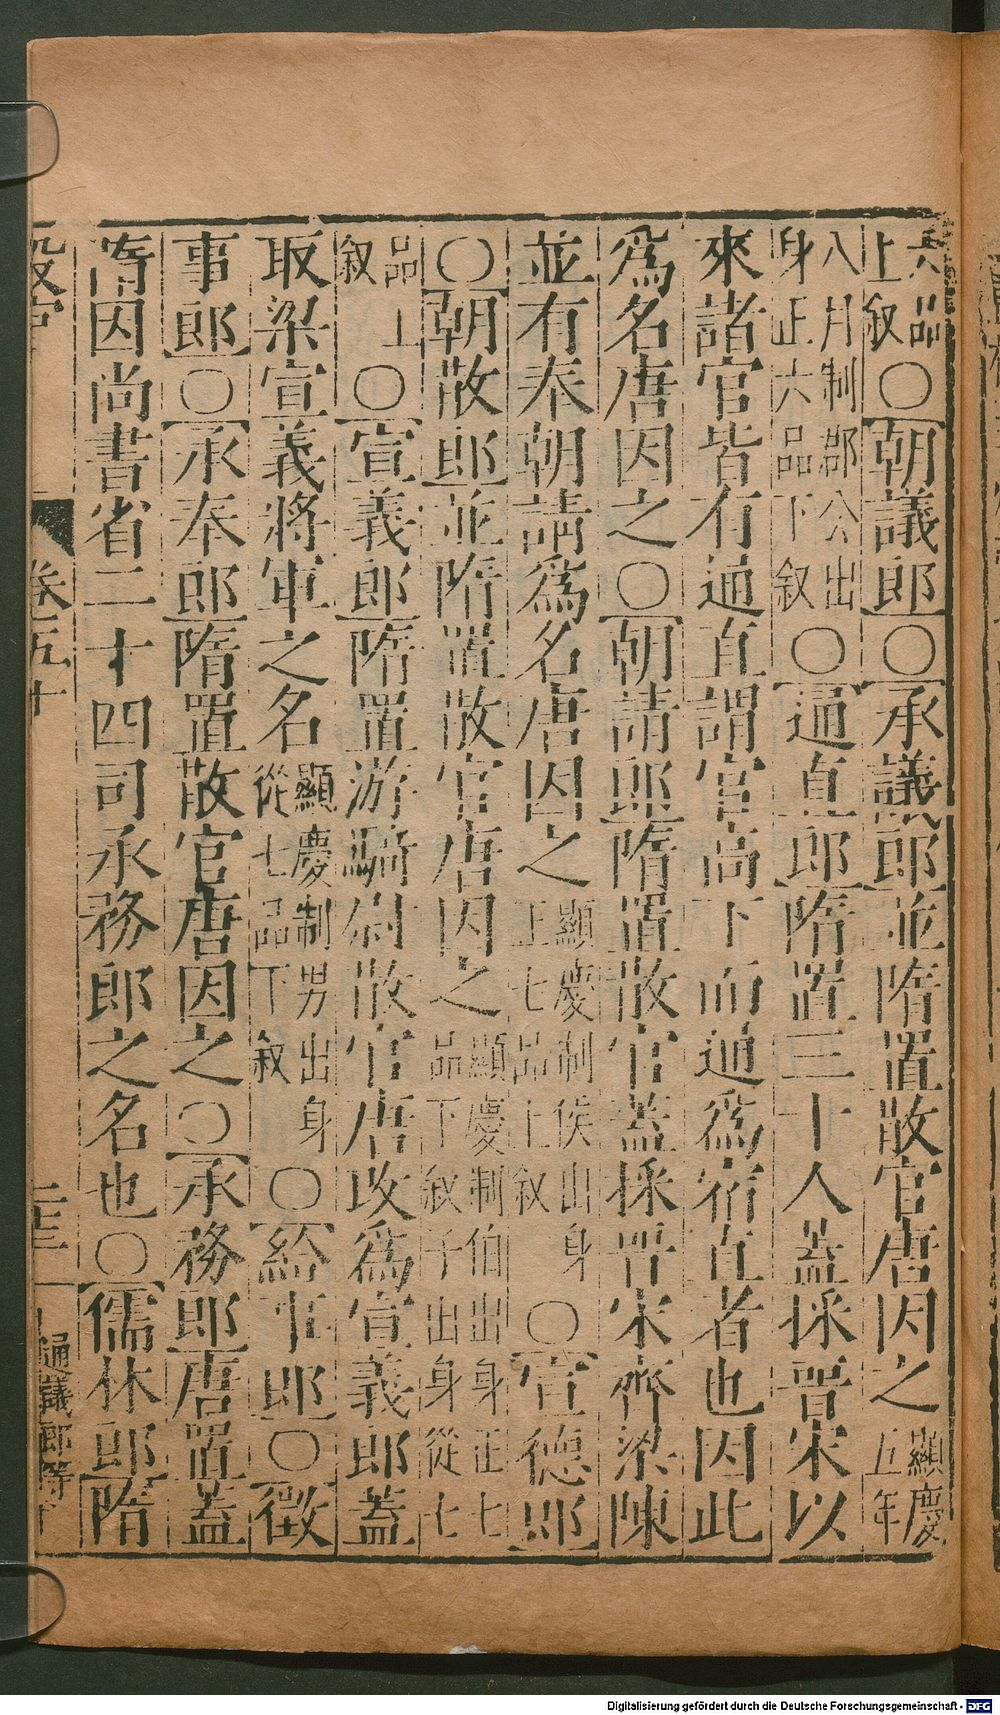 六品上敘○朝議郎○承議郎並隋置散官唐因之顯慶五年
八月制郡公出身正六品下敘○通直郎隋置三十人蓋採晋宋以
來諸官皆有通直謂官高下而通爲宿直者也因此
爲名唐因之○朝請郎隋置散官蓋採晋宋齊梁陳
並有奉朝請爲名唐因之顯慶制侯出身正七品上敘○宣德郎
○朝散郎並隋置散官唐因之顯慶制伯出身正七品下敘子出身從七
品上敘○宣義郎隋置游騎尉散官唐改爲宣義郎蓋
取梁宣義將軍之名顯慶制男出身從七品下敘○給事郎○徵
事郎○承奉郎隋置散官唐因之○承務郎唐置蓋
隋因尚書省二十四司承務郎之名也○儒林郎隋
設官 卷五十 二十三 通議郎等
Digitalisierung gefördert durch die Deutsche Forschungsgemeinschaft - DFG